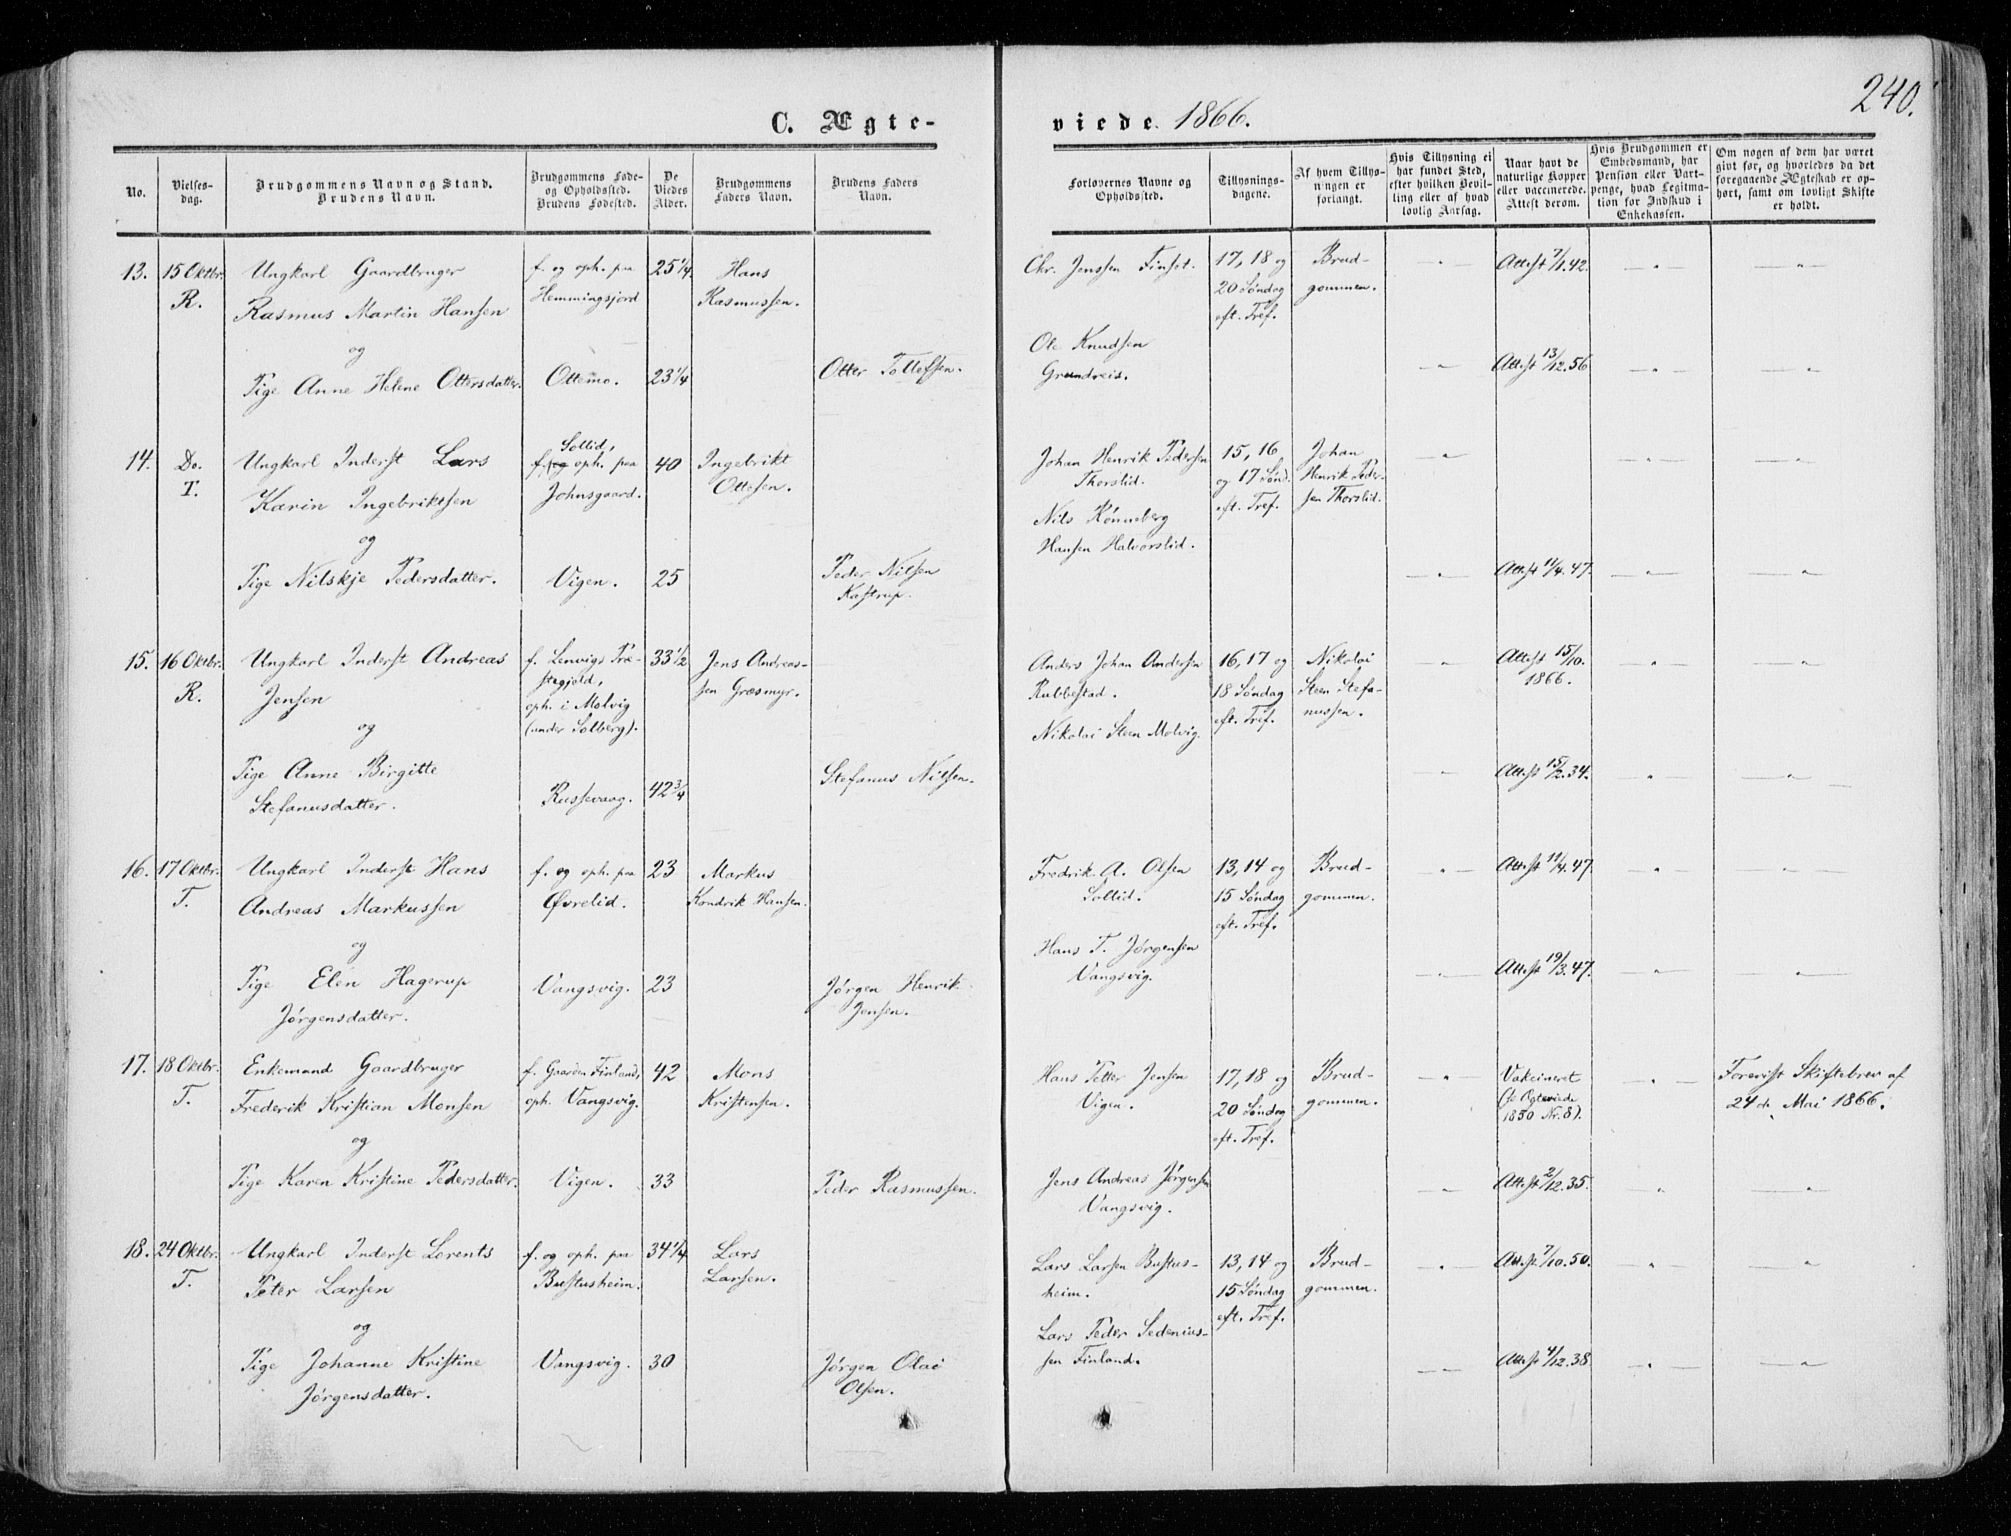 240.
C. Ægte-
viede. 1866.
No.
Vielses-
dag.
Brudgommens Navn og Stand.
Brudens Navn.
Brudgommens Føde-
og Opholdssted.
Brudens Fødested.
De
Viedes
Alder.
Brudgommens
Faders Navn.
Brudens Faders
Navn.
Forlovernes Navne og
Opholdssted.
Tillysnings-
dagene.
Af hvem Tillys-
ningen er
forlangt.
Hvis Tillysning ei
har fundet Sted,
efter hvilken Bevil-
ling eller af hvad
lovlig Aarsag.
Naar havt de
naturlige Kopper
eller vaccinerede.
Attest derom.
Hvis Brudgommen er
Embedsmand, har
Pension eller Vart-
penge, hvad Legitima-
tion for Indskud i
Enkekassen.
Om nogen af dem har været
givt før, og hvorledes da det
foregaaende Ægteskab er op-
hørt, samt om lovligt Skifte
er holdt.
13.
15 Oktbr.
R.
Ungkarl Gaardbruger
Rasmus Martin Hansen
og
Pige Anne Helene Ottersdatter.
f. og oph. paa
Hemmingsjord
Ottemo.
25 1/4
23 1/4
Hans
Rasmussen.
Otter Tollefsen.
Chr. Jenssen Finset.
Ole Knudsen
Grundreis.
17, 18 og
20 Søndag
eft. Tref.
Brud-
gommen.
Attest 7/1.42.
Attest 13/12.56
14.
Do.
T.
Ungkarl Inderst Lars
Karin Ingebriktsen
og
Pige Nilskje Pedersdatter.
Sollid,
f. og oph. paa
Johnsgaard.
Vigen.
40
25
Ingebrikt
Ottesen.
Peder Nilsen
Kastrup.
Johan Henrik Pedersen
Thorslid.
Nils Rønneberg
Hansen Halvorslid.
15, 16
og 17 Sønd.
eft. Tref.
Johan
Henrik Peder-
sen Thorslid.
Attest 11/4.47.
15.
16 Oktbr.
R.
Ungkarl Inderst Andreas
Jensen
og
Pige Anne Birgitte
Stefanusdatter.
f. Lenvigs Præ-
stegjeld,
oph. i Molvig
(under Solberg).
Russevaag.
33 1/2
42 3/4
Jens Andreas-
sen Græsmyr.
Stefanus Nilsen.
Anders Johan Andersen
Rubbestad.
Nikolai Steen Molvig.
16, 17 og
18 Søndag
eft. Tref.
Nikolai
Steen Stefa-
nussen.
Attest 15/10.
1866.
Attest 15/2.34.
16.
17 Oktbr.
T.
Ungkarl Inderst Hans
Andreas Markussen
og
Pige Elen Hagerup
Jørgensdatter.
f. og oph. paa
Øvrelid.
Vangsvig.
23
23
Markus
Kondrik Hansen.
Jørgen Henrik
Jensen.
Fredrik A. Olsen
Sollid.
Hans T. Jørgensen
Vangsvig.
13, 14 og
15 Søndag
eft. Tref.
Brud-
gommen.
Attest 11/4.47.
Attest 19/3.47.
17.
18 Oktbr.
T.
Enkemand Gaardbruger
Frederik Kristian Monsen
og
Pige Karen Kristine Pedersdatter.
f. Gaarden Finland,
oph. Vangsvig.
Vigen.
42
33
Mons
Kristensen.
Peder Rasmussen.
Hans Petter Jensen
Vigen.
Jens Andreas Jørgensen
Vangsvig.
17, 18 og
20 Søndag
eft. Tref.
Brud-
gommen.
Vakcineret
(se Ægteviede
1850 Nr. 8).
Attest 2/12.35.
Forevist Skiftebrev af
24de Mai 1866.
18.
24 Oktbr.
T.
Ungkarl Inderst Lorents
Peter Larsen
og
Pige Johanne Kristine
Jørgensdatter.
f. og oph. paa
Bustusheim.
Vangsvig.
34 1/4
30
Lars
Larsen.
Jørgen Olai
Olsen.
Lars Larsen Bustus-
heim.
Lars Peder Sedenius-
sen Finland.
13, 14 og
15 Søndag
eft. Tref.
Brud-
gommen.
Attest 7/10.50.
Attest 4/12.38